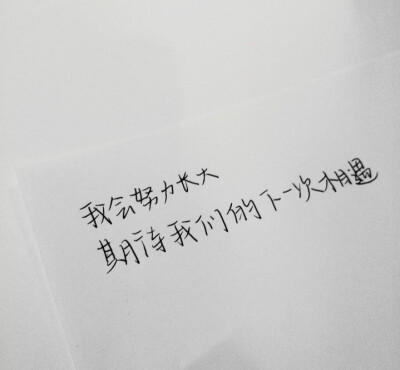 我会努力长大
期待我们的下一次相遇